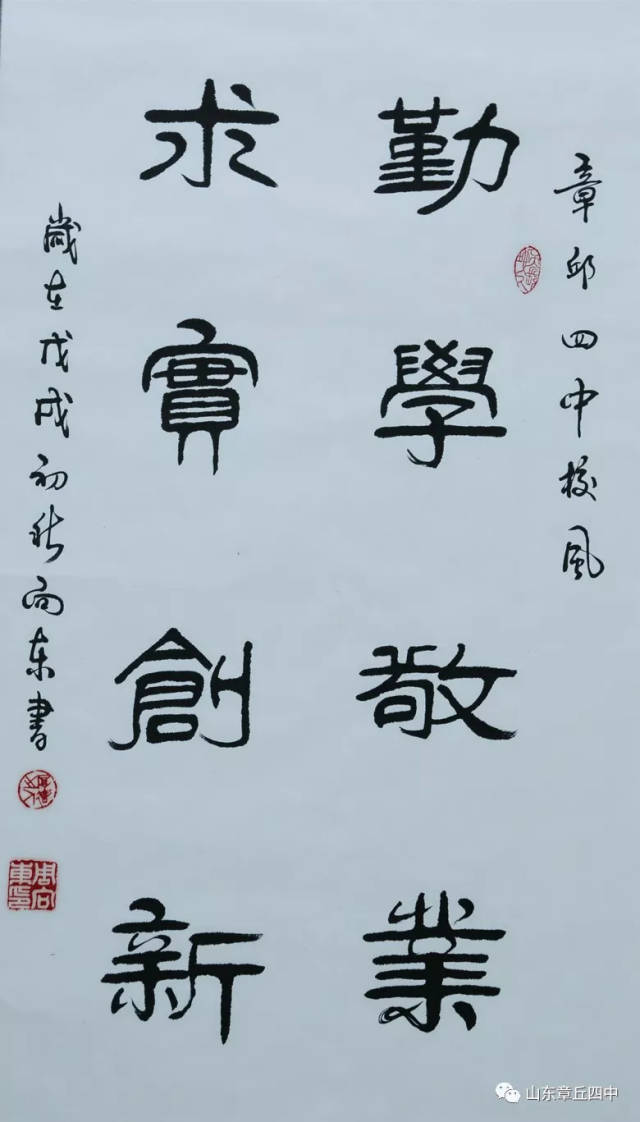 章邱四中校風
勤學敬業
求實創新
歲在戊戌初秋向東書
周向東印
山东章丘四中